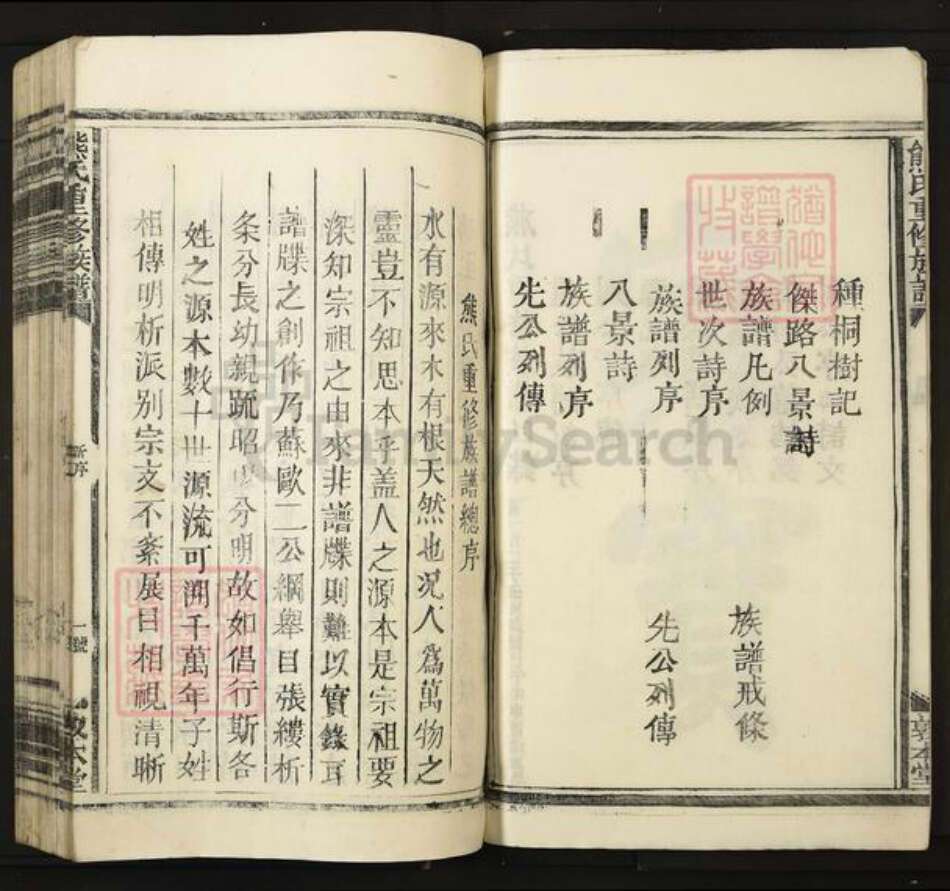 熊氏重修族譜
種桐樹記
傑路八景詩
族譜凡例
族譜戒條
世次詩序
族譜列序
先公列傳
八景詩
族譜列序
先公列傳
敦本堂
熊氏重修族譜總序
水有源來木有根天然也况人爲萬物之
靈豈不知思本乎蓋人之源本是宗祖要
深知宗祖之由來非譜牒則難以實錄耳
譜牒之創作乃蘇歐二公綱舉目張縷析
条分長幼親疏昭分明故如倡行斯各
姓之源本數十世源流可溯千萬年子姓
相傳明析派别宗支不紊展目相視清晰
熊氏重修族譜
新序
一號
敦本堂
FamilySearch